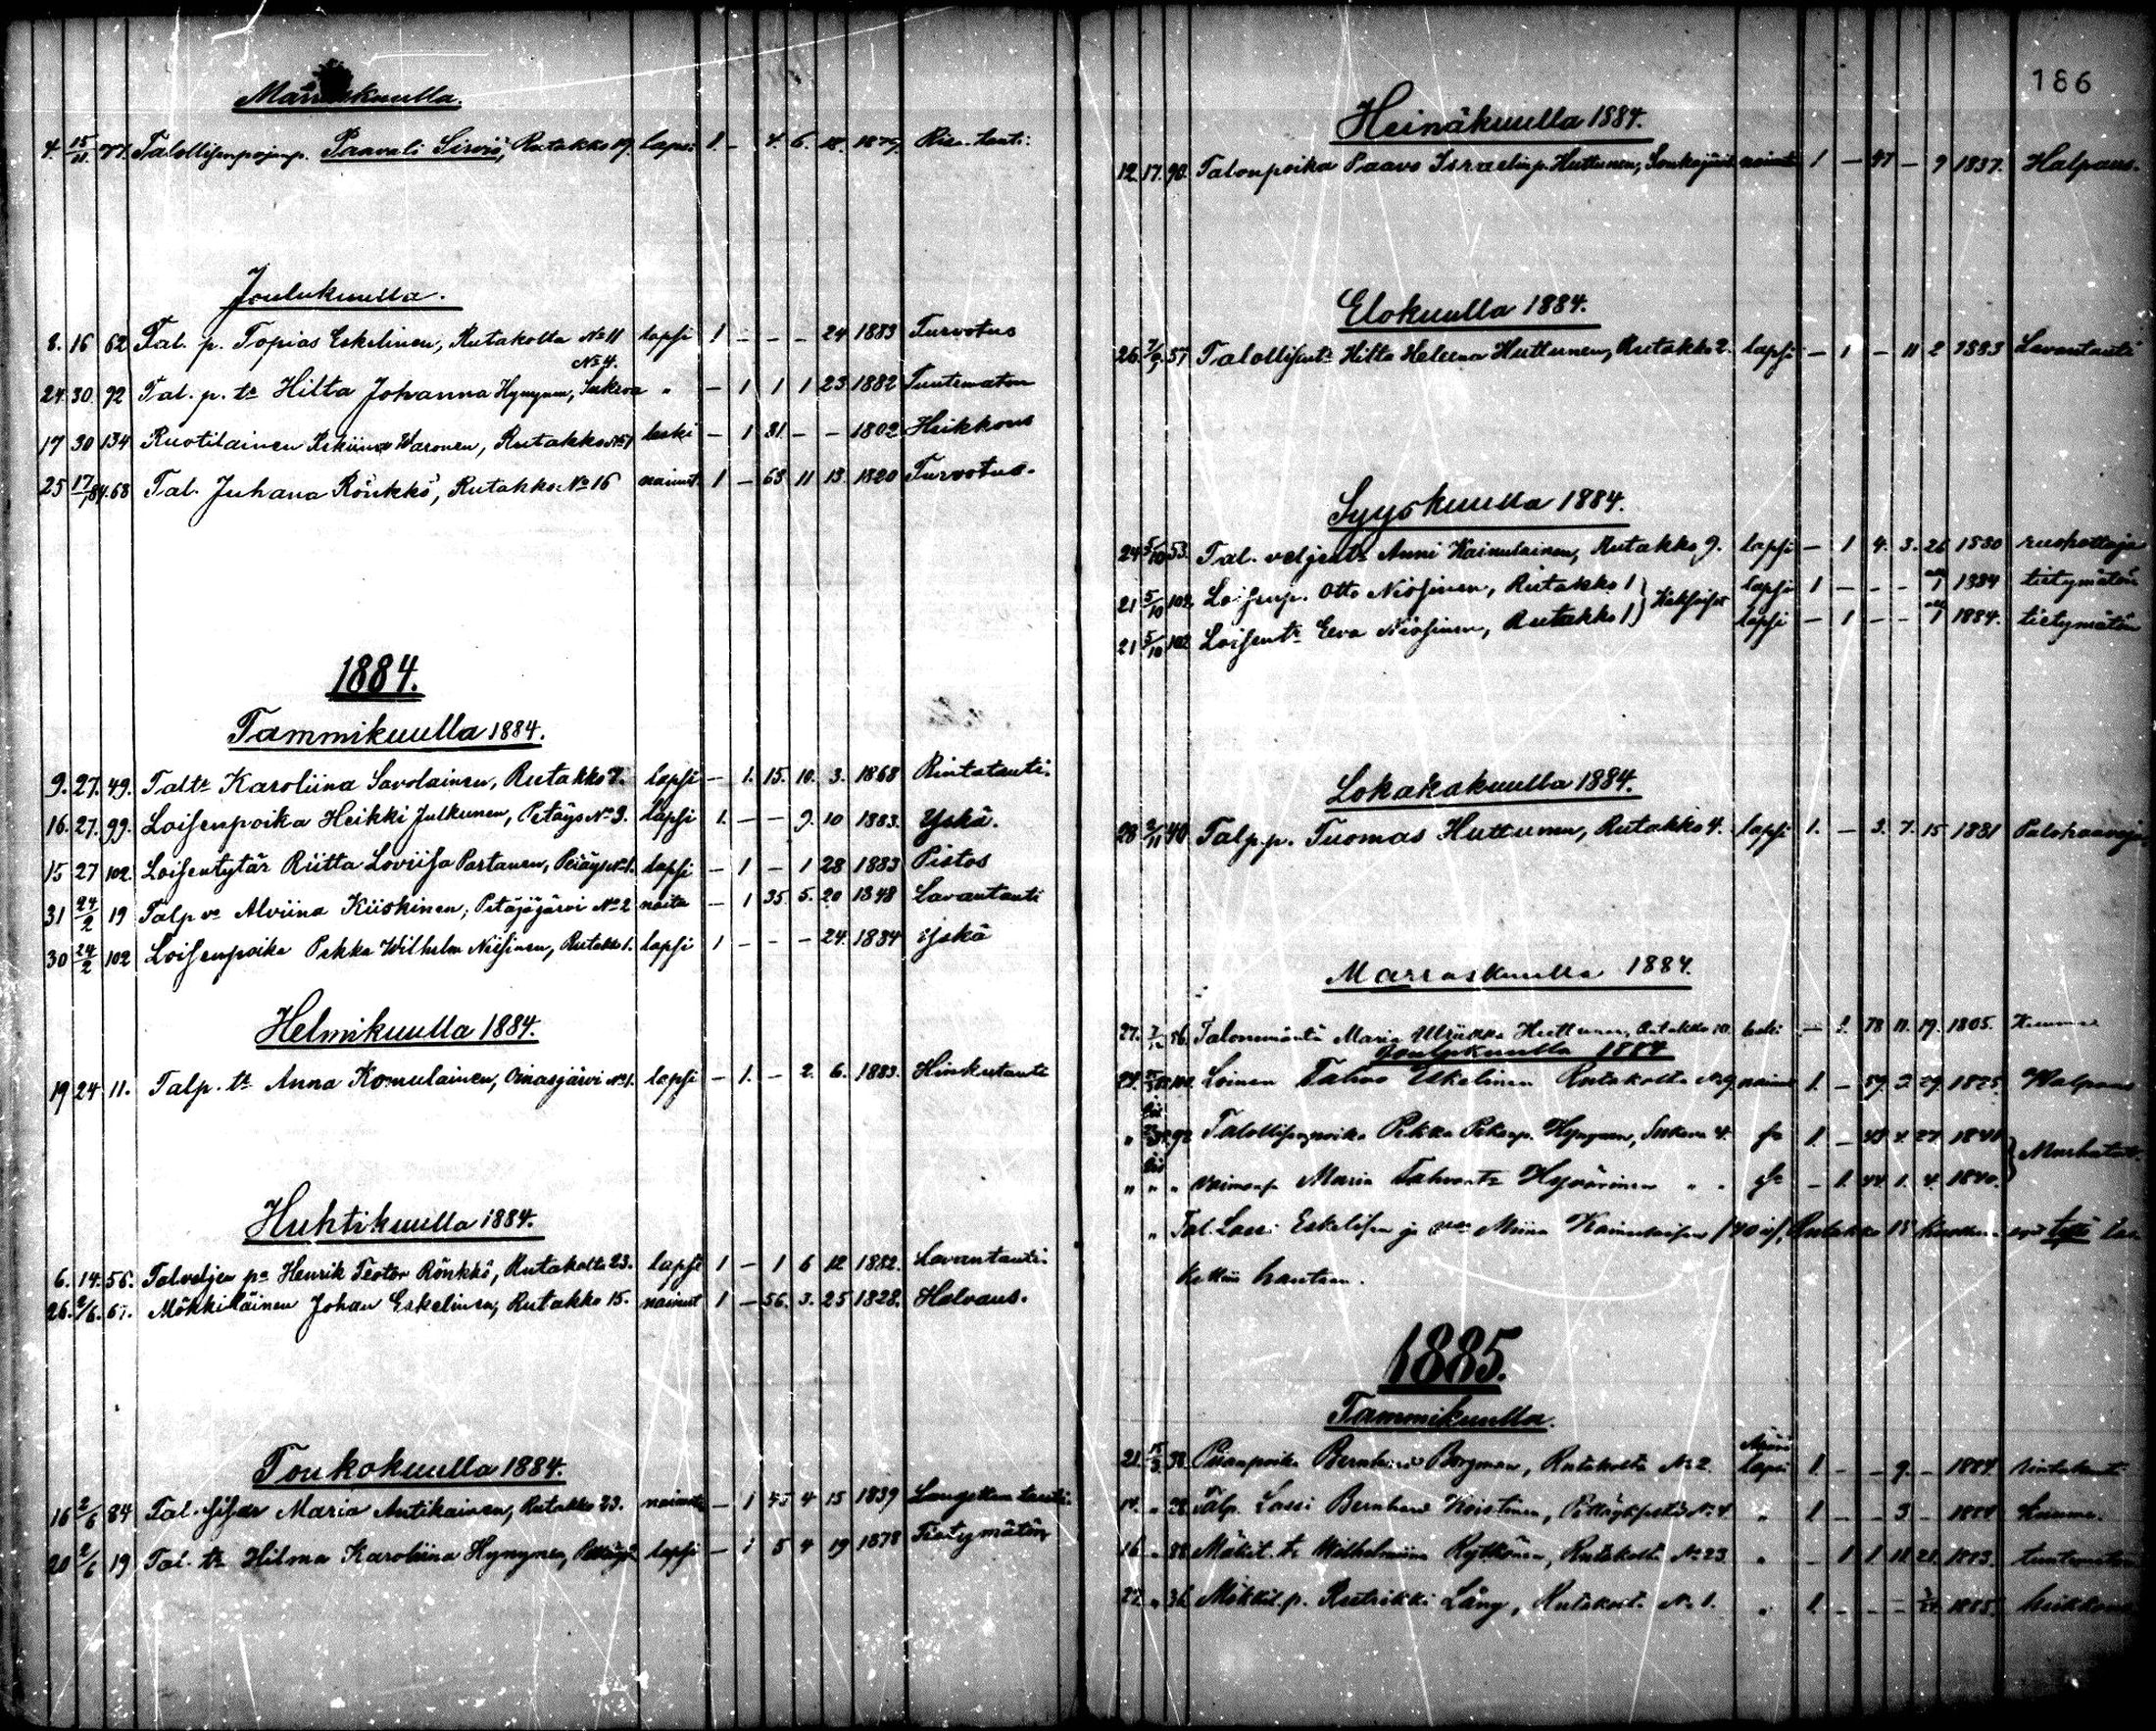 Marraskuulla.
4. 15/11. 77. Talollisenpojanp. Paavali Sirviö, Rutakko 19. lapsi 1. - 4. 6. 18. 1879
Joulukuulla.
8. 16 62 Tal. p. Topias Eskelinen, Rutakolta No 11 lapsi 1 - - - 24 1883 Turvotus
No 4.
24. 30. 92 Tal. p. tr Hilta Johanna Hyngnen, Sukeva " - 1 1 1 23. 1882 Tuntematon
17 30 134 Ruotilainen Waronen, Rutakko No 1 leski - 1 81 - - 1802 Heikkous
25 17/1 84. 68 Tal. Juhana Rönkkö, Rutakko No 16 nainut 1 - 63 11 13. 1820 Turvotus.
1884.
Tammikuulla 1884.
9. 27. 49. Taltr Karoliina Savolainen, Rutakko 7. lapsi - 1. 15. 10. 3. 1868 Rintatauti.
16. 27. 99. Loisenpoika Heikki Julkunen, Petäys No 3. lapsi 1. - - 9. 10 1883. Yskä.
15 27 102. Loisentytär Riitta Loviisa Partanen, Petäys No 1. lapsi - 1 - 1 28 1883 Pistos
31 24/2 19 Talp vo Alviina Kiiskinen, Petäjäjärvi No 2 naitu - 1 35. 5. 20 1848 Lavantauti
30 24/2 102 Loisenpoika Pekka Wilhelm Niisinen, Rutakko 1. lapsi 1 - - - 24. 1884 Yskä
Helmikuulla 1884.
19 24. 11. Talp. tr Anna Komulainen, Oinasjärvi No 1. lapsi - 1. - 2. 6. 1883. Hinkutauti
Huhtikuulla 1884.
6. 14. 56. Talveljen pa Henrik Teotor Rönkkö, Rutakolta 23. lapsi 1 - 1 6 12 1882. Lavantauti.
26. 2/6. 67. Mökkiläinen Johan Eskelinen, Rutakko 15. nainut 1 - 56. 3. 25 1828. Halvaus.
Toukokuulla 1884.
16 2/6 84 Tal. sisar Maria Antikainen, Rutakko 23. nainut - 1 45 4 15 1839
20 2/6 19 Tal. tr Hilma Karoliina Hyngnen, lapsi - 1 5 4 19 1878 Tietymätön
186
Heinäkuulla 1884.
12. 17. 90. Talonpoika Paavo Israelinp. Huttunen, Sonkajärvi nainut 1 - 47 - 9 1837. Halpaus.
Elokuulla 1884.
26. 7/9. 57 Talollisentr Hilta Heleena Huttunen, Rutakko 2. lapsi - 1 - 11 2 1883 Lavantauti
Syyskuulla 1884.
24 5/10 53. Tal. veljentr Anni Kainulainen, Rutakko 9. lapsi - 1 4. 3. 26 1880
21 5/10 102 Loisenp. Otto Niisinen, Rutakko 1 } Kaksoiset lapsi 1 - - - 1 1884 tietymätön
21 5/10 102 Loisentr Eeva Niisinen, Rutakko 1 } lapsi - 1 - - 1 1884. tietymätön
Lokakakuulla 1884.
28 2/11 40 Talp.p. Tuomas Huttunen, Rutakko 4. lapsi 1. - 3. 7. 15 1881
Marraskuulla 1884.
27. Talonemäntä Maria Ulriikka Huttunen, Rutakko 10. leski - 1. 78 11. 19. 1805.
Joulukuulla 1884
Loinen Tahvo Eskelinen Rutakolta No 9 nainut 1. - 59. 2 29. 1825 Halpaus
" 92 Talollisenpoika Pekka Pekanp. Hyngnen, Sukeva 4. 1. - 1841 } Murhatut.
" " " Vaimonsa Maria Tahvontr Hyvärinen " " - 1. 44 1. 4. 1840.
" Tal. Lassi Eskelisen ja Miina Kainulaisen Rutakko 15
hautaan.
1885.
Tammikuulla.
21. 15/3. 38. Piianpoika Bernhard Bergman, Rutakolta No 2. lapsi 1. - - 9. - 1884. rintatauti
14. " 28 Talp. Lassi Bernhard Koistinen, No 4 " 1 - - 3 - 1884
16 " 88 Mäkit. tr Wilhelmiina Rytkönen, Rutakolta No 23 " - 1 1 1883. tuntematon
22. " 36. Mökkil. p. Rietrikki Lång, Rutakolta No 1. " 1. - - - 1885. heikkous